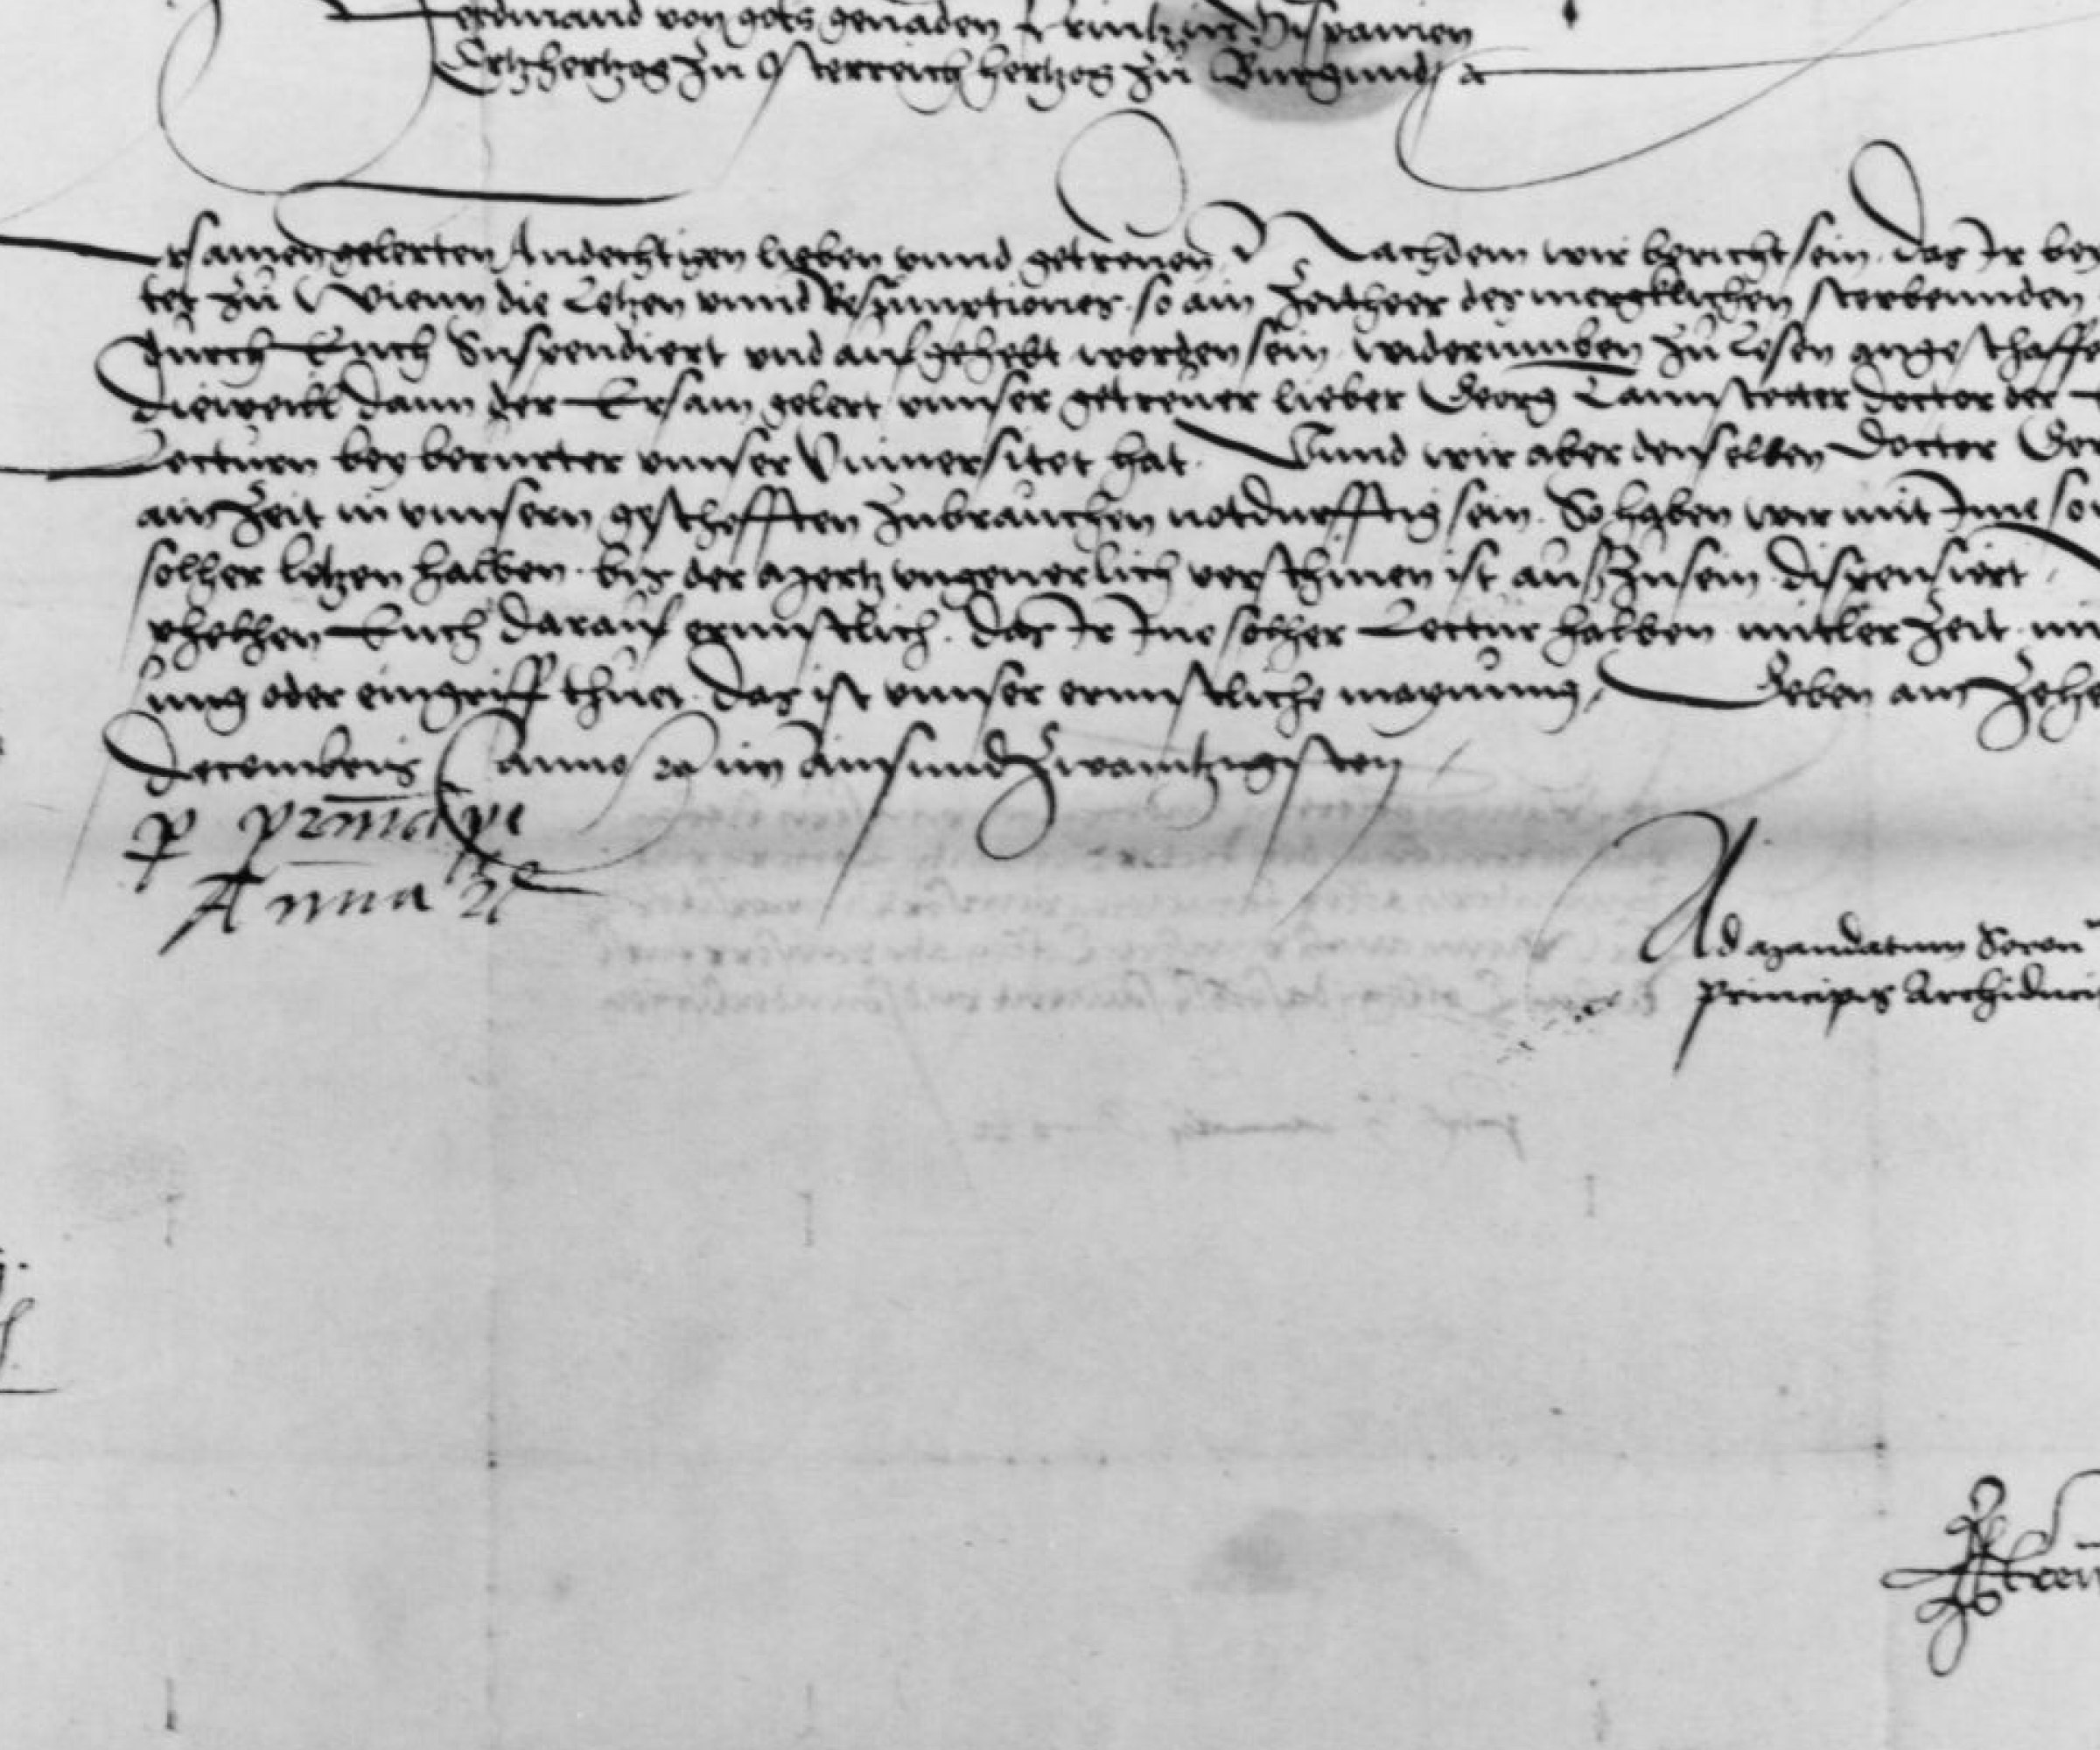 Ferdinand von gots genaden Printz in Hispanien
Ertzhertzog zu Osterreich hertzog zu Burgundj
Ersamen gelerten Andechtigen lieben vnnd getreuen Nachdem wir bericht sein. das Ir bey
zu Wienn die Letzen vnnd so ain Zeither der mergklichen sterbennden
durch Euch Suspendiert vnd aufgehebt worden sein widerumben zu lesen angeschaffe
dieweill dann der Ersam gelert vnnser getreuer lieber Georg Tannstetter doctor der
Lecturn bey berurter vnnser Vniuersitet hat. Vnnd wir aber denselben Doctor
ain Zeit in vnnsern geschefften zubrauchen notdurfftig sein. So haben wir mit Ime
solher letzen halben. bis der Mertz vngeuerlich verschinen ist auszusein dispensiert.
Euch darauf ernnstlich. das Ir Ine solher Lectur halben mitler Zeit
ung oder eingriff thuet. das ist vnnser ernnstliche maynung. Geben am Zehe
decembris anno im Ainsundzwaintzigisten
p principe
Anna
Ad mandatum Seren
principis Archiduci